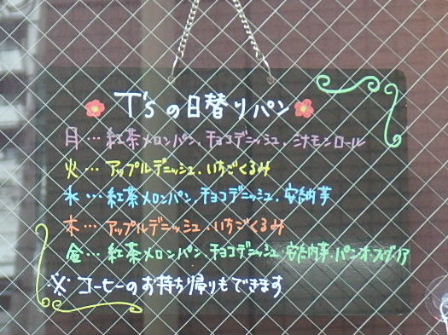 T'sの日替りパン
月…紅茶メロンパン、チョコデニッシュ・シナモンロール
火…アップルデニッシュ・いちごくるみ
水…紅茶メロンパン、チョコデニッシュ、安納芋
木…アップルデニッシュ・いちごくるみ
金…紅茶メロンパン、チョコデニッシュ、安納芋・パンオスヴィア
※コーヒーのお持ち帰りもできます